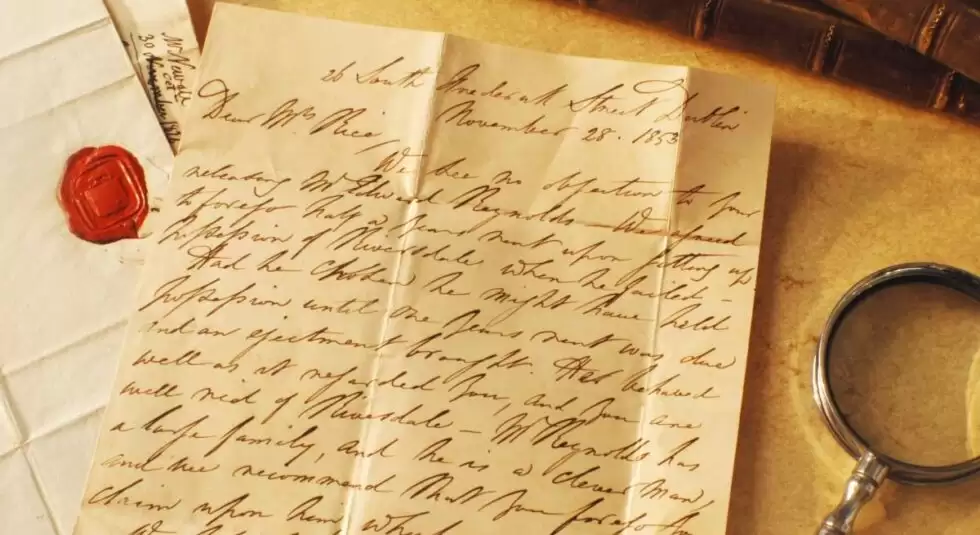 Mr Newell
Oct
30 November 18
26 South Frederick Street Dublin
November 28. 1853
Dear Mrs Rice,
We see no objection to your
releasing Mr Edward Reynolds – We agreed
to forego half a years rent upon getting up
possession of Riversdale when he failed –
Had he chosen he might have held
possession until one years rent was due
and an ejectment brought. He behaved
well as it regarded you, and you are
well rid of Riversdale – Mr Reynolds has
a large family, and he is a clever man,
and we recommend that you forego
claim upon him
We